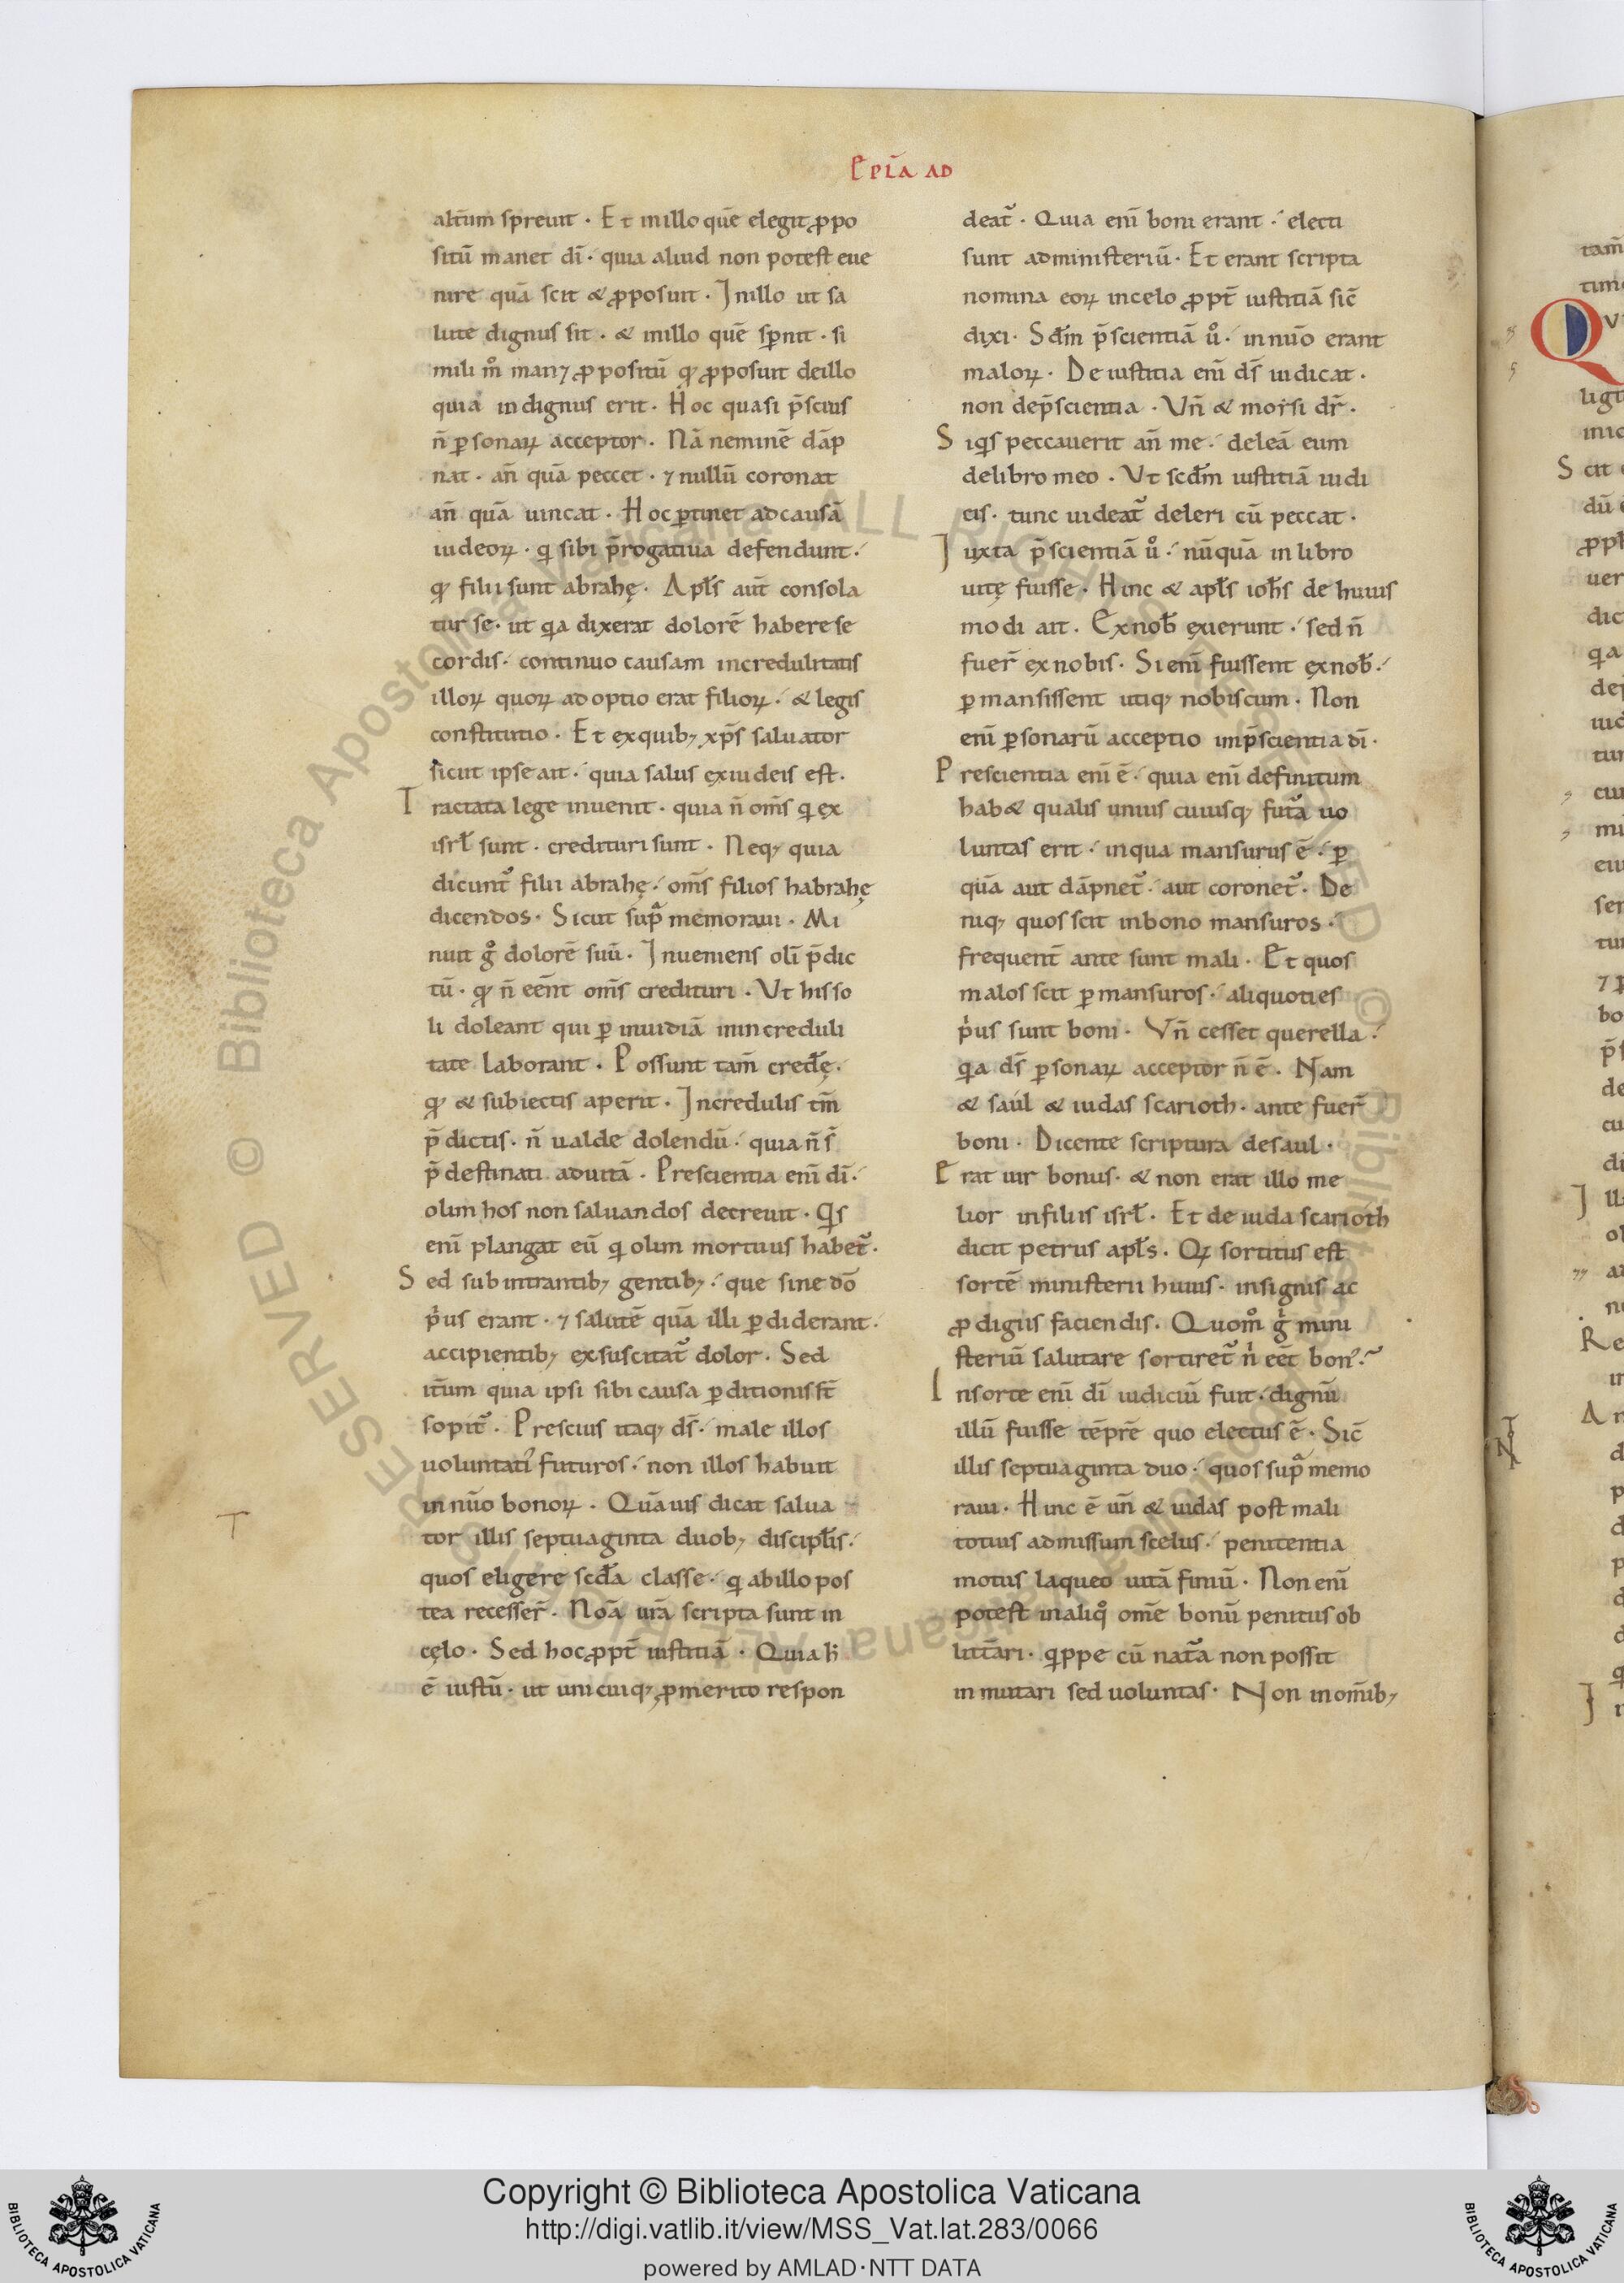 Epła ad
alt̄um spreuit · Et in illo quē elegit ꝓpo
sitū manet dī · quia aliud non potest eue
nire quā scit & ꝓposuit · In illo ut sa
lute dignus sit · & in illo quē spnit · si
mili mͦ man⁊ ꝓpositū qͥ ꝓposuit de illo
quia indignus erit · Hoc quasi p̄scius
n̄ ꝑsonaꝝ acceptor · Nā neminē dāp
nat · an̄ quā peccet · ⁊ nullū coronat
an̄ quā uincat · Hoc ꝑtinet ad causā
iudeoꝝ · qͥ sibi p̄rogatiua defendunt ·
qͥ filii sunt abrahę · Apłs aut̄ consola
tur se · ut qͣa dixerat dolorē habere se
cordis · continuo causam incredulitatis
illoꝝ quoꝝ adoptio erat filioꝝ · & legis
constitutio · Et ex quibꝫ xp̄s saluator
sicut ipse ait · quia salus ex iudeis est ·
Tractata lege inuenit · quia n̄ om̄s qͥ ex
isrł sunt · credituri sunt · Neqꝫ quia
dicunt᷑ filii abrahę · om̄s filios habrahę
dicendos · Sicut supͣ memoraui · Mi
nuit gͦ dolorē suū · Inueniens olī p̄dic
tū · qͥ n̄ eēnt om̄s credituri · Ut his so
li doleant qui ꝑ inuidiā in increduli
tate laborant · Possunt tam̄ credẹ̄ ·
qͥ & subiectis aperit · Incredulis tm̄
p̄dictis · n̄ ualde dolendū · quia n̄ s̄
p̄destinati ad uitā · Prescientia enī dī ·
olim hos non saluandos decreuit · Qͥs
enī plangat eū qͥ olim mortuus habet᷑ ·
Sed subintrantibꝫ gentibꝫ · que sine dō
pͥus erant · ⁊ salutē quā illi ꝑdiderant ·
accipientibꝫ exsuscitat᷑ dolor · Sed
it̄um quia ipsi sibi causa ꝑditionis st̄
sopit᷑ · Prescius itaqꝫ ds̄ · male illos
uoluntatis futuros · non illos habuit
in nūo bonoꝝ · Quāuis dicat salua
tor illis septuaginta duobꝫ discipłis ·
quos eligere scđa classe · qͥ ab illo pos
tea recesser̄ · Noā ur̄a scripta sunt in
cęlo · Sed hoc ꝓpt̄ iustitiā · Quia h̄
ē iustū · ut unicuiqꝫ ꝓ merito respon
deat᷑ · Quia enī boni erant · electi
sunt ad ministeriū · Et erant scripta
nomina eoꝝ in celo ꝓpt̄ iustitiā sic̄
dixi · Scđm p̄scientiā uͦ · in nūo erant
maloꝝ · De iustitia enī ds̄ iudicat ·
non de p̄scientia · Un̄ & moẏsi dr̄ ·
Siqͥs peccauerit an̄ me · deleā eum
de libro meo · Ut scđm iustitiā iudi
cis · tunc uideat᷑ deleri cū peccat ·
Iuxta p̄scientiā uͦ · nūquā in libro
uitę fuisse · Hinc & apłs iohs̄ de huius
modi ait · Ex nob̄ exierunt · sed n̄
fuer̄ ex nobis · Si enī fuissent ex nob̄ ·
ꝑmansissent utiqꝫ nobiscum · Non
enī ꝑsonarū acceptio in p̄scientia dī ·
Prescientia enī ē · quia enī definitum
hab& qualis unius cuiusqꝫ fut᷑a uo
luntas erit · in qua mansurus ē · ꝑ
quā aut dāpnet᷑ · aut coronet᷑ · De
niqꝫ quos scit in bono mansuros ·
frequent̄ ante sunt mali · Et quos
malos scit ꝑmansuros · aliquoties
pͥus sunt boni · Un̄ cesset querella ·
qͣa ds̄ ꝑsonaꝝ acceptor n̄ ē · Nam
& saúl & iudas scarioth · ante fuer̄
boni · Dicente scriptura de saul ·
Erat uir bonus · & non erat illo me
lior in filiis isrł · Et de iuda scarioth
dicit petrus apłs · Qꝝ sortitus est
sortē ministerii huius · in signis ac
ꝓdigiis faciendis · Quom̊ gͥ mini
steriū salutare sortiret᷑ nͥ eēt bonꝰ ·
In sorte enī dī iudiciū fuit · dignū
illū fuisse tēpr̄e quo electus ē · Sic̄
illis septuaginta duo · quos supͣ memo
raui · Hinc ē un̄ & iudas post mali
totius admissum scelus · penitentia
motus laqueo uitā finiū · Non enī
potest in aliqͦ om̄e bonū penitus ob
litt̄ari · qͥppe cū nat᷑a non possit
inmutari sed uoluntas · Non in om̄ibꝫ
T
Copyright © Biblioteca Apostolica Vaticana
http://digi.vatlib.it/view/MSS_Vat.lat.283/0066
powered by AMLAD·NTT DATA
BIBLIOTECA APOSTOLICA VATICANA
BIBLIOTECA APOSTOLICA VATICANA